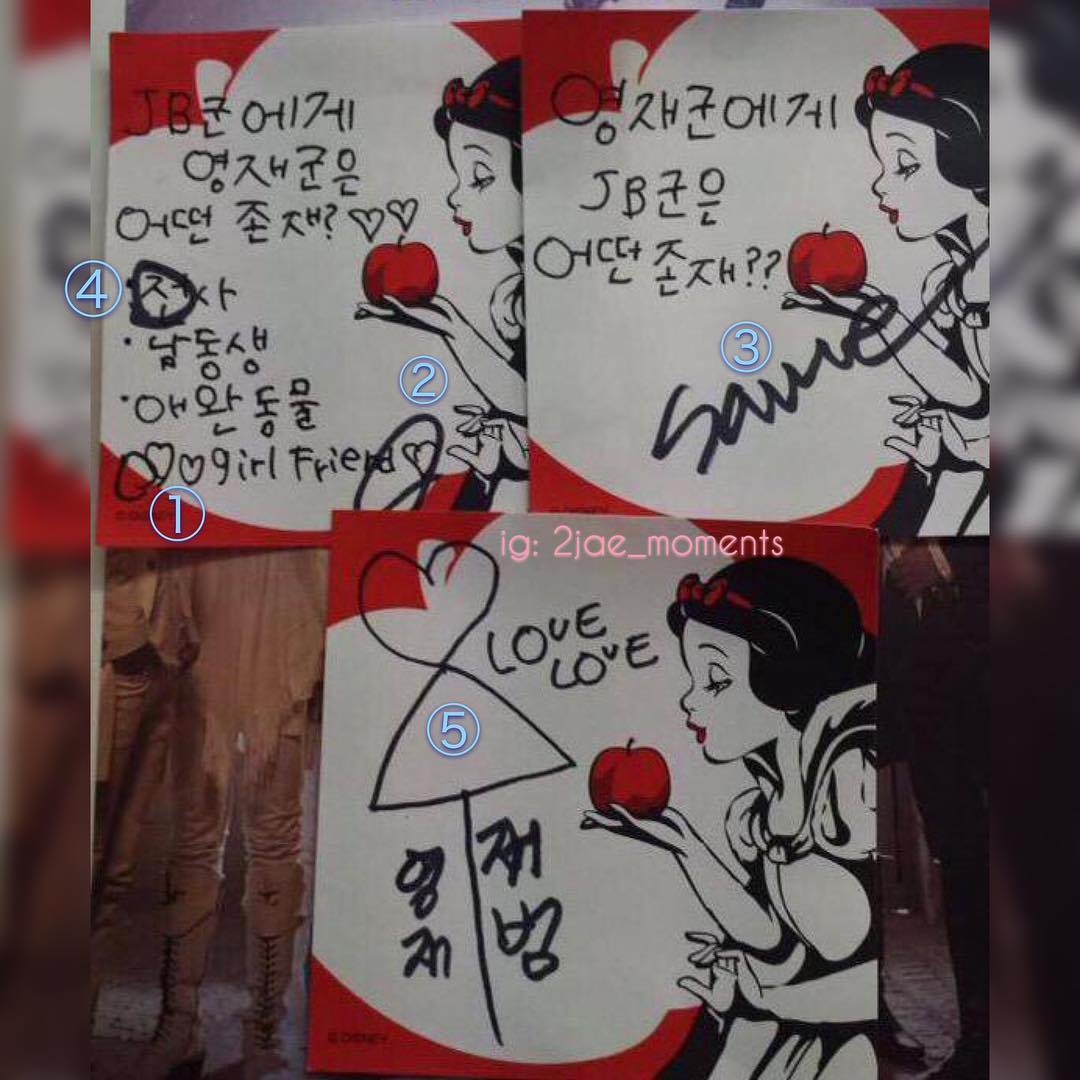 JB군에게
영재군은
어떤 존재?♡♡
④
·천사
·남동생
②
·애완동물
♡♡girl Friend♡
①
©DISNEY
영재군에게
JB군은
어떤 존재??
③
same
ig: 2jae_moments
LOVE
LOVE
⑤
영재
재범
©DISNEY